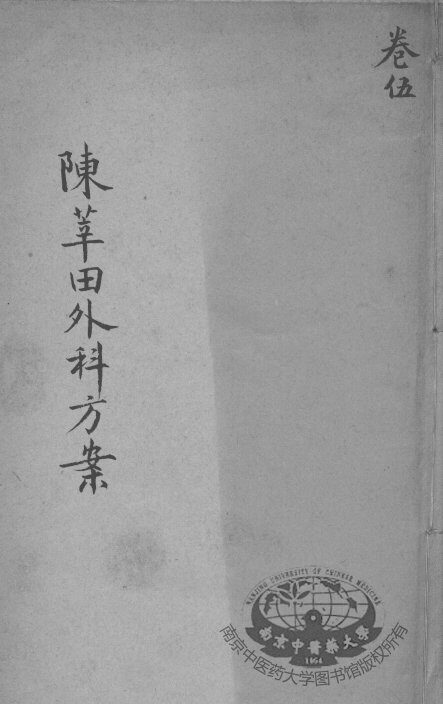 卷伍
陳莘田外科方案
NANJING UNIVERSITY OF CHINESE MEDICINE
南京中醫藥大學
1954
南京中医药大学图书馆版权所有